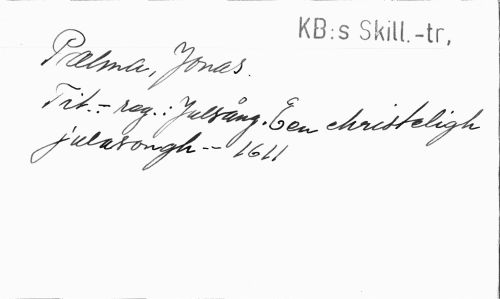 KB:s Skill.-tr,
Palma, Jonas.
Tit.-reg.: Julsång. Een christeligh
julasongh -- 1611